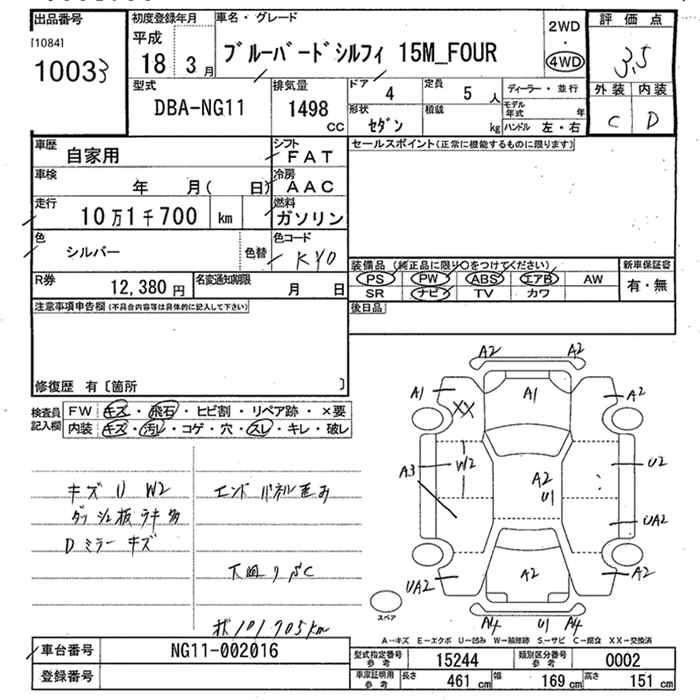 出品番号 初度登録年月 車名・グレード 2WD 評価点
[1084] 平成 ・ 3.5
10033 18 3月 ブルーバードシルフィ 15M_FOUR 4WD
型式 排気量 ドア 4 定員 5 人 ディーラー・並行 外装 内装
DBA-NG11 1498 cc 形状 セダン 積載 kg モデル年式 年 C D
ハンドル 左・右
車歴 自家用 シフト FAT セールスポイント(正常に機能するものに限ります)
車検 年 月( 日) 冷房 AAC
走行 10万1千700 km 燃料 ガソリン
色 シルバー 色替 色コード KY0
装備品 (純正品に限り○をつけてください) 新車保証書
PS PW ABS エアB AW 有・無
R券 12,380円 名変通知期限 月 日 SR ナビ TV カワ
注意事項申告欄(不具合内容等は具体的に記入して下さい) 後日品
修復歴 有〔箇所 〕
検査員 FW キズ・飛石・ヒビ割・リペア跡・×要
記入欄 内装 キズ・汚レ・コゲ・穴・スレ・キレ・破レ
A2 A2
A1 A1 A2
XX
A3 W2 A2 U1 U2
UA2
UA2 A2 A2
A4 U1 A4
キズ U W2 エンドパネル歪み
Dミラーキズ
下回りSC
101705km
スペア
A-キズ E-エクボ U-凹み W-補修跡 S-サビ C-腐食 XX-交換済
車台番号 NG11-002016 型式指定番号 参考 15244 類別区分番号 参考 0002
登録番号 車庫証明用 参考 長さ 461 cm 幅 169 cm 高さ 151 cm